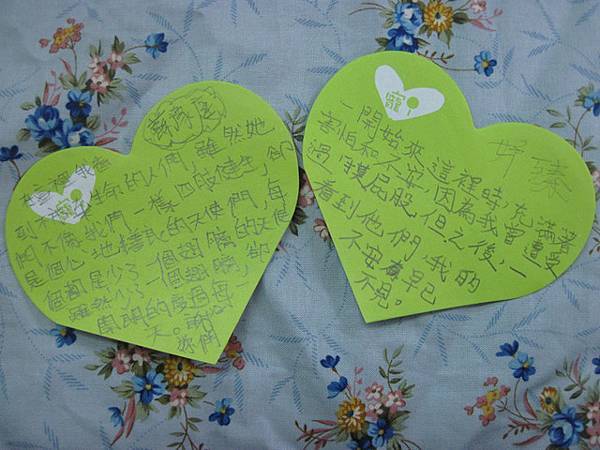 在這裡我看
的人們，雖然她
們不像我們一樣四肢健全，卻
是個心地善良的天使們，每
個都是少了一個翅膀的天使
雖然少了一個翅膀，
開開的度過每一
天。謝謝
妳們
臻
一開始來這裡時，充滿著
害怕和不安，因為我曾遭
過，屁股，但之後，一
看到他們，我的
不安早已
不見。